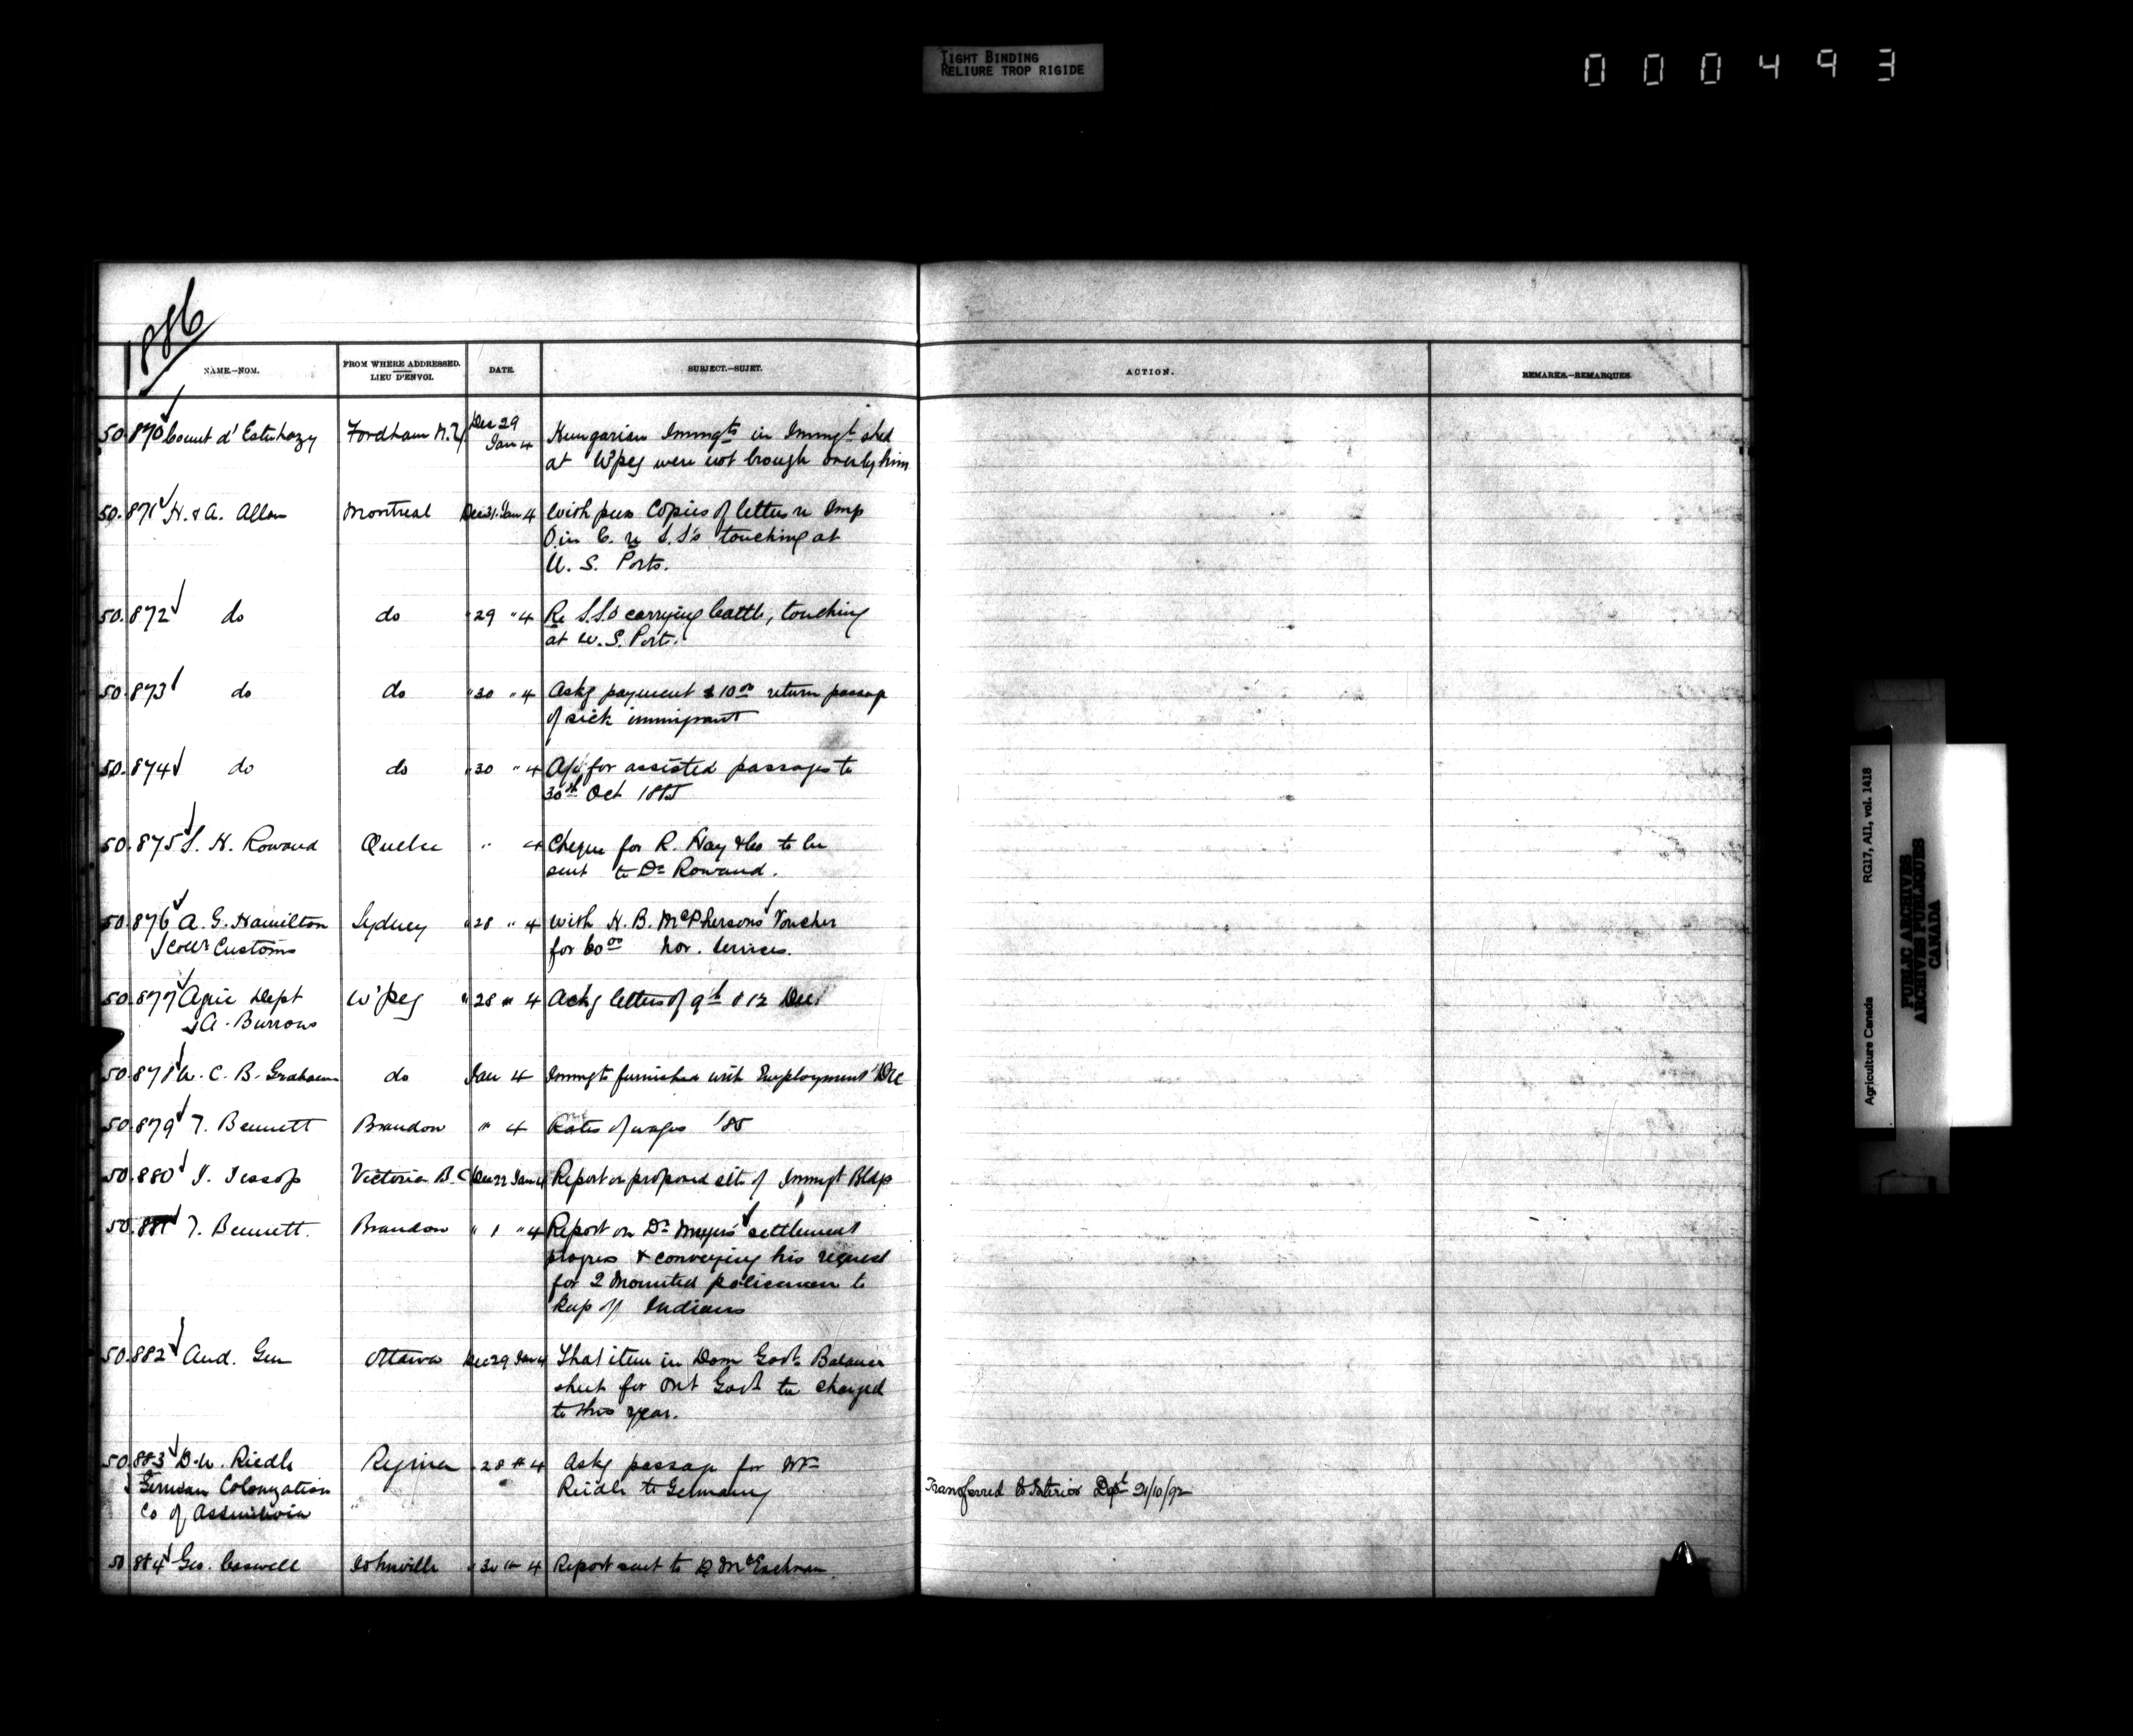 TIGHT BINDING
RELIURE TROP RIGIDE
000493
1886
NAME.—NOM.
FROM WHERE ADDRESSED.
LIEU D'ENVOI.
DATE.
SUBJECT.—SUJET.
ACTION.
REMARKS.—REMARQUES.
50.870 Count d' Esterhazy Fordham N.Y. Dec 29 Jan 4 Hungarian Immgts in Immgt shed
at W'peg were not brough over by him
50.871 H. & A. Allan Montreal Dec 31. Jan 4 With press Copies of letters re Imp
O. in C. re S.S's touching at
U. S. Ports.
50.872 do do " 29 " 4 Re S.S's carrying Cattle, touching
at U. S. Ports.
50.873 do do " 30 " 4 Askg payment $ 10 00 return passage
of sick immigrant
50.874 do do " 30 " 4 A/c for assisted passages to
30th Oct 1885
50.875 S. H. Rowand Quebec " 4 Cheque for R. Hay & Co to be
sent to Dr Rowand.
50.876 A. G. Hamilton Sydney " 28 " 4 With H. B. McPhersons Voucher
Collr Customs for 60 00 Nov. Services.
50.877 Agric Dept W'peg " 28 " 4 Ackg letters of 9th & 12 Dec
A. Burrows
50.878 W. C. B. Grahame do Jan 4 Immgts furnished with Employment Dec
50.879 T. Bennett Brandon " 4 Rates of wages '85
50.880 J. Jessop Victoria B.C. Dec 22 Jan 4 Report on proposed site of Immgt Bldg
50.881 T. Bennett. Brandon " 1 " 4 Report on Dr Meyers settlement
progress & conveying his request
for 2 Mounted policemen to
keep off Indians
50.882 Aud. Gen Ottawa Dec 29 Jan 4 That item in Dom Govt Balance
sheet for Ont Govt be charged
to this year.
50.883 D. W. Riedle Regina " 28 " 4 Askg passage for Mr
German Colonization Riedle to Germany Transferred to Interior Dept 21/10/92
Co of Assiniboia
50.884 Geo. Caswell Johnville " 30 " 4 Report sent to D. McEachran.
Agriculture Canada RG17, AII, vol. 1418
PUBLIC ARCHIVES
ARCHIVES PUBLIQUES
CANADA